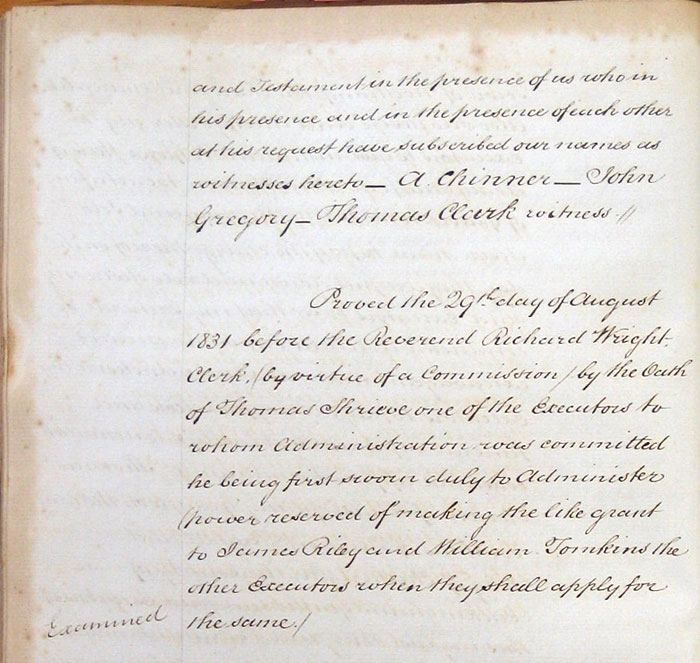 and Testament in the presence of us who in
his presence and in the presence of each other
at his request have subscribed our names as
witnesses hereto — A. Chinner — John
Gregory — Thomas Clark witness //
Proved the 29th day of August
1831 before the Reverend Richard Wright
Clerk, (by virtue of a Commission) by the Oath
of Thomas Shrieve one of the Executors to
whom Administration was committed
he being first sworn duly to Administer
(power reserved of making the like grant
to James Riley and William Tomkins the
other Executors when they shall apply for
the same.)
Examined